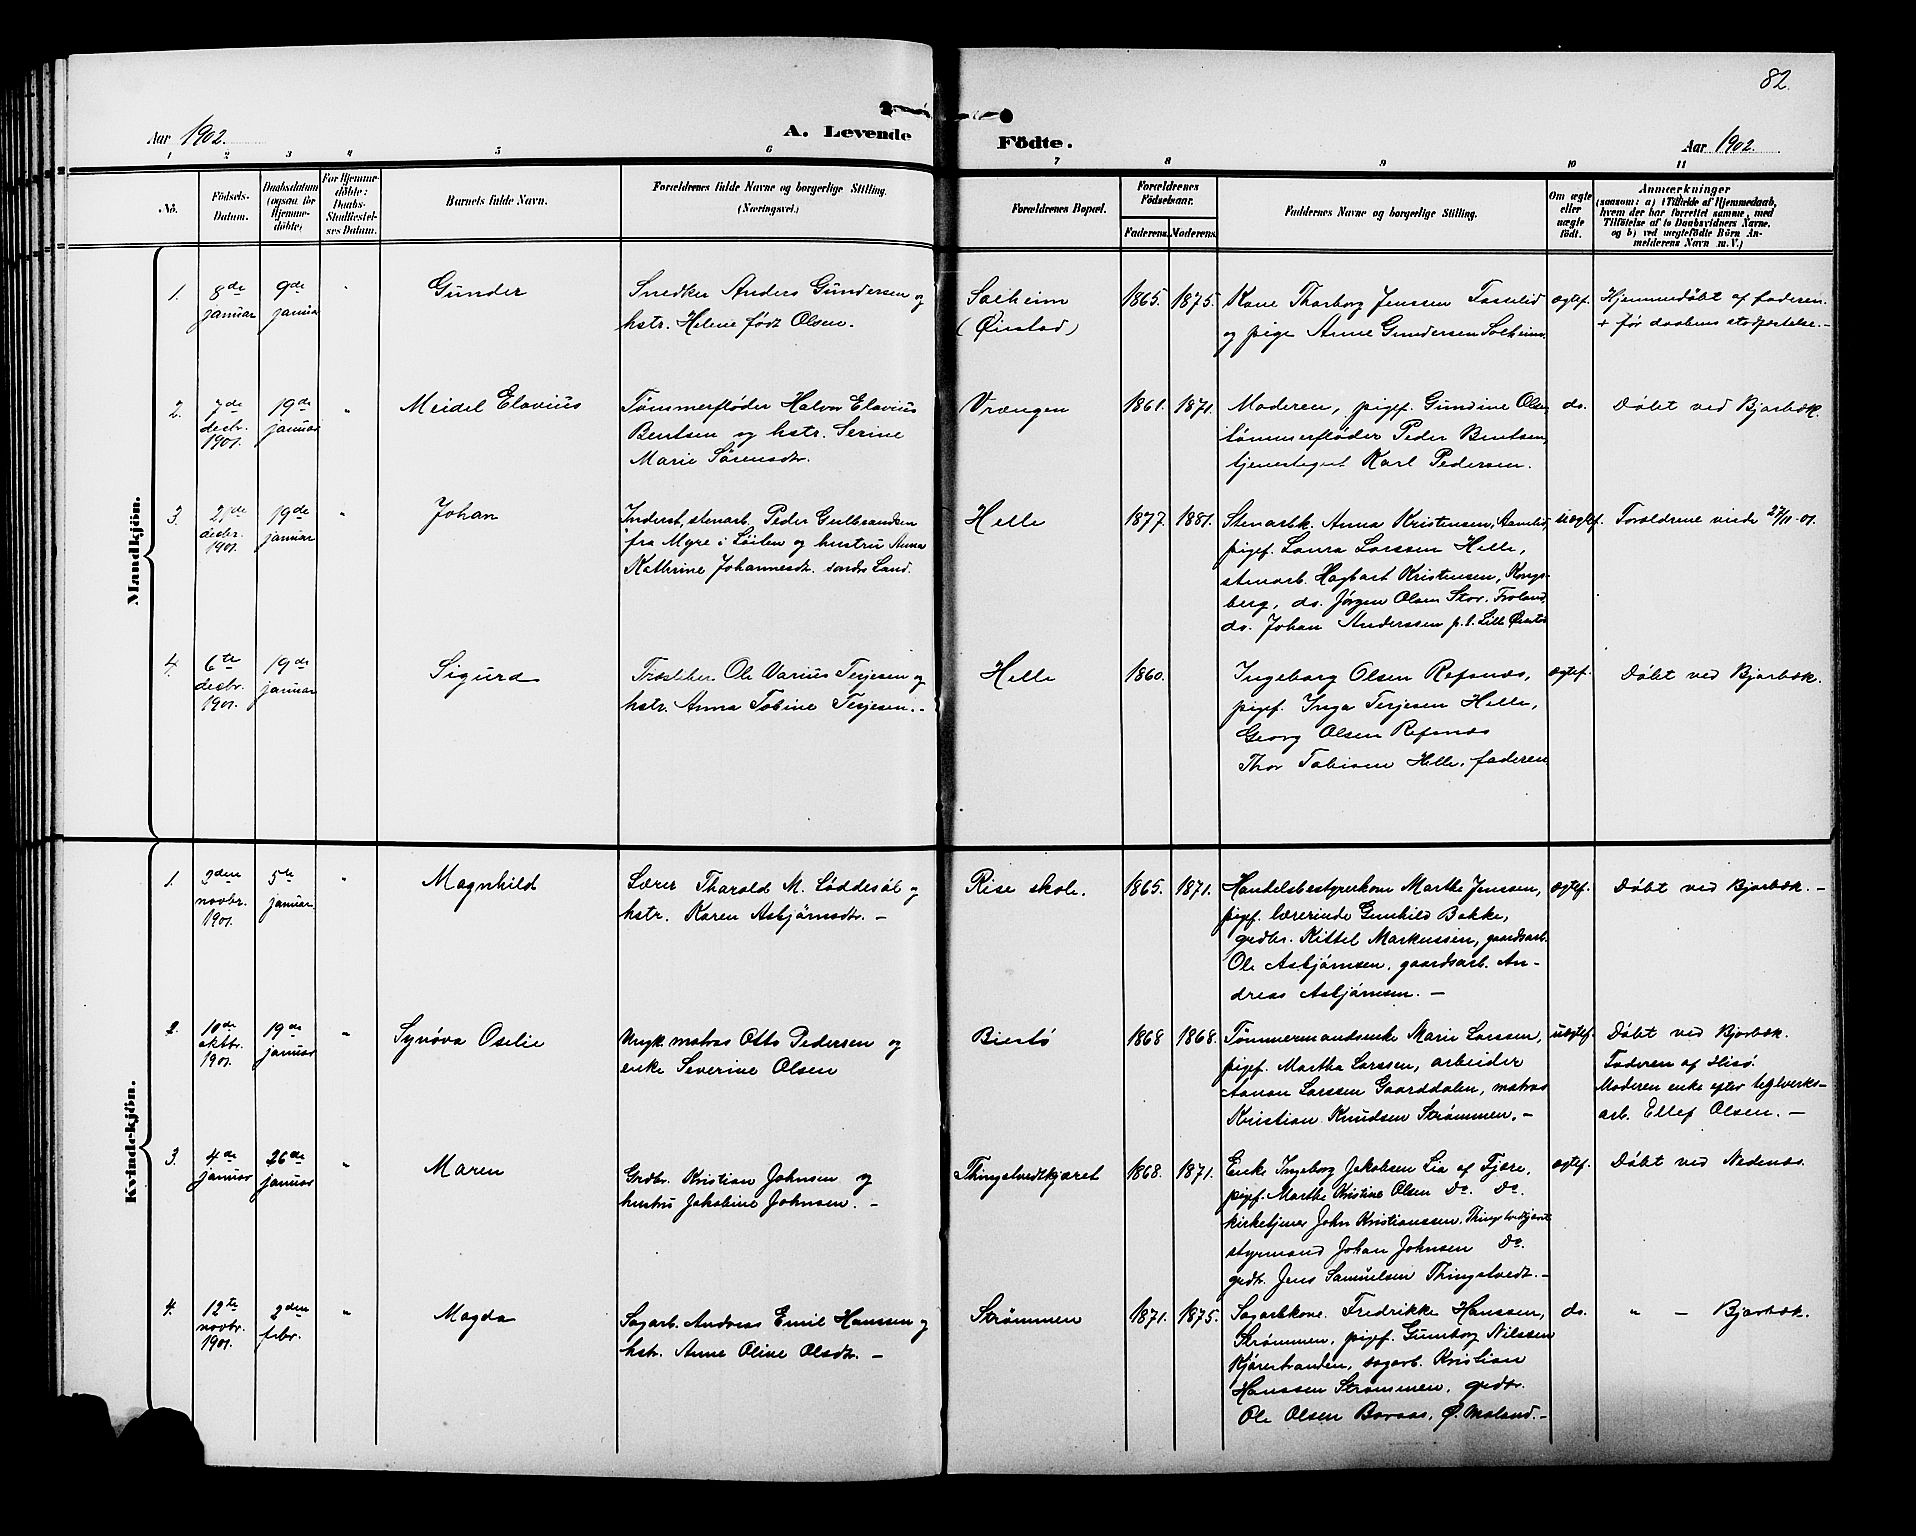 82.
Aar 1902.
A. Levende
Födte.
Aar 1902.
1 2 3 4 5 6 7 8 9 10 11
No.
Födsels-
Datum.
Daabsdatum
(ogsaa for
Hjemme-
döbte)
For Hjemme-
döbte:
Daabs-
Stadfæstel-
ses Datum.
Barnets fulde Navn.
Forældrenes fulde Navne og borgerlige Stilling.
(Næringsvei.)
Forældrenes Bopæl.
Forældrenes
Födselsaar.
Faderens. Moderens.
Faddernes Navne og borgerlige Stilling.
Om ægte
eller
uægte
födt.
Anmærkninger
(saasom: a) i Tilfælde af Hjemmedaab,
hvem der har forrettet samme, med
Tilföielse af to Daabsvidners Navne.
og b) ved uægtefödte Börn An-
melderens Navn m. V.)
Mandkjön.
1.
8de
januar
9de
januar
"
Gunder
Snedker Anders Gundersen og
hstr. Helene født Olsen.
Solheim
(Øiestad)
1865.
1875.
Kone Thorborg Jenssen
og pige Anne Gundersen Solheim.
ægtef.
Hjemmedøbt af faderen.
+ før daabens stadfæstelse.-
2.
7de
decbr.
1901.
19de
januar
"
Meidel Elavius
Tømmerfløder Halvor Elavius
Bentsen og hstr. Serine
Marie Sørensdtr.
Vrængen
1861.
1871.
Moderen, pigef. Gundine Olsen
tømmerfløder Peder Bentsen,
tjenestegut Karl Pedersen.
do.
Døbt ved Bjorbæk.
3.
21de
decbr.
1901.
19de
januar
"
Johan
Inderst, stenarb. Peder Gulbrandsen
fra Myre i Løiten og hustru Anna
Kathrine Johannesdtr. søndre Land.
Helle
1877.
1881.
Stenarbk. Anna Kristensen, Aamlid,
pigef. Laura Larssen Helle,
stenarb. Hagbart Kristensen, Kongs-
berg, do. Jørgen Olsen Stor. Froland,
do. Johan Anderssen p.t. Lille Øiestad
uægtef.
Forældrene viede 27/11-01.
4.
6te
decbr.
1901.
19de
januar
Sigurd
Ole Varius Terjesen og
hstr. Anna Tobine Terjesen.-
Helle
1860.
Ingeborg Olsen Refsnæs,
pigef. Inga Terjesen Helle,
Georg Olsen Refsnæs
Thor Tobisen Helle, faderen
ægtef.
Døbt ved Bjorbæk.
Kvindekjön.
1.
novbr.
1901.
5te
januar
"
Magnhild
Lærer Tharald M. Løddesøl og
hstr. Karen Asbjørnsdtr. -
Rise skole.
1865.
1871.
Handelsbestyrerkone Marthe Jenssen,
pigef. lærerinde Gunhild Bakke,
grdbr. Kittel Markussen, gaardsarb.
Ole Asbjørnsen, gaardsarb. An-
dreas Asbjørnsen. -
ægtef.
Døbt ved Bjorbæk. -
2.
10de
oktbr.
1901.
19de
januar
"
Synøva Oselie
Ungk. matros Otto Pedersen og
enke Severine Olsen
Biestø
1868
1868.
Tømmermandsenke Marie Larssen,
pigef. Martha Larssen, arbeider
Aanon Larssen Gaarddalen, matros
Kristian Knudsen Strømmen. -
uægtef.
Døbt ved Bjorbæk.
Faderen af Hisø.
Moderen enke efter teglverks-
arb. Ellef Olsen. -
3.
4de
januar
26de
januar
"
Maren
Grdbr. Kristian Johnsen og
hustru Jakobine Johnsen. -
Thingstvedtkjæret
1868.
1871.
Enke Ingeborg Jakobsen Lia af Fjære,
pigef. Marthe Kristine Olsen Do. Do.
kirketjener John Kristianssen, Thingstvedtkjæret
styrmand Johan Johnsen Do.
grdbr. Jens Samuelsen Thingstvedt. -
ægtef.
Døbt ved Nedenæs.
4.
12te
novbr.
1901.
2den
febr.
"
Magda
Sagarb. Andreas Emil Hanssen og
hstr. Anne Olive Olsdtr. -
Strømmen
1871.
1875.
Sagarbkone. Fredrikke Hanssen,
Strømmen, pigef. Gunborg Nilssen
Kjørestranden, sagarb. Kristian
Hanssen Strømmen, grdbr.
Ole Olsen Baraas, Ø. Moland. -
do.
" - Bjorbæk.